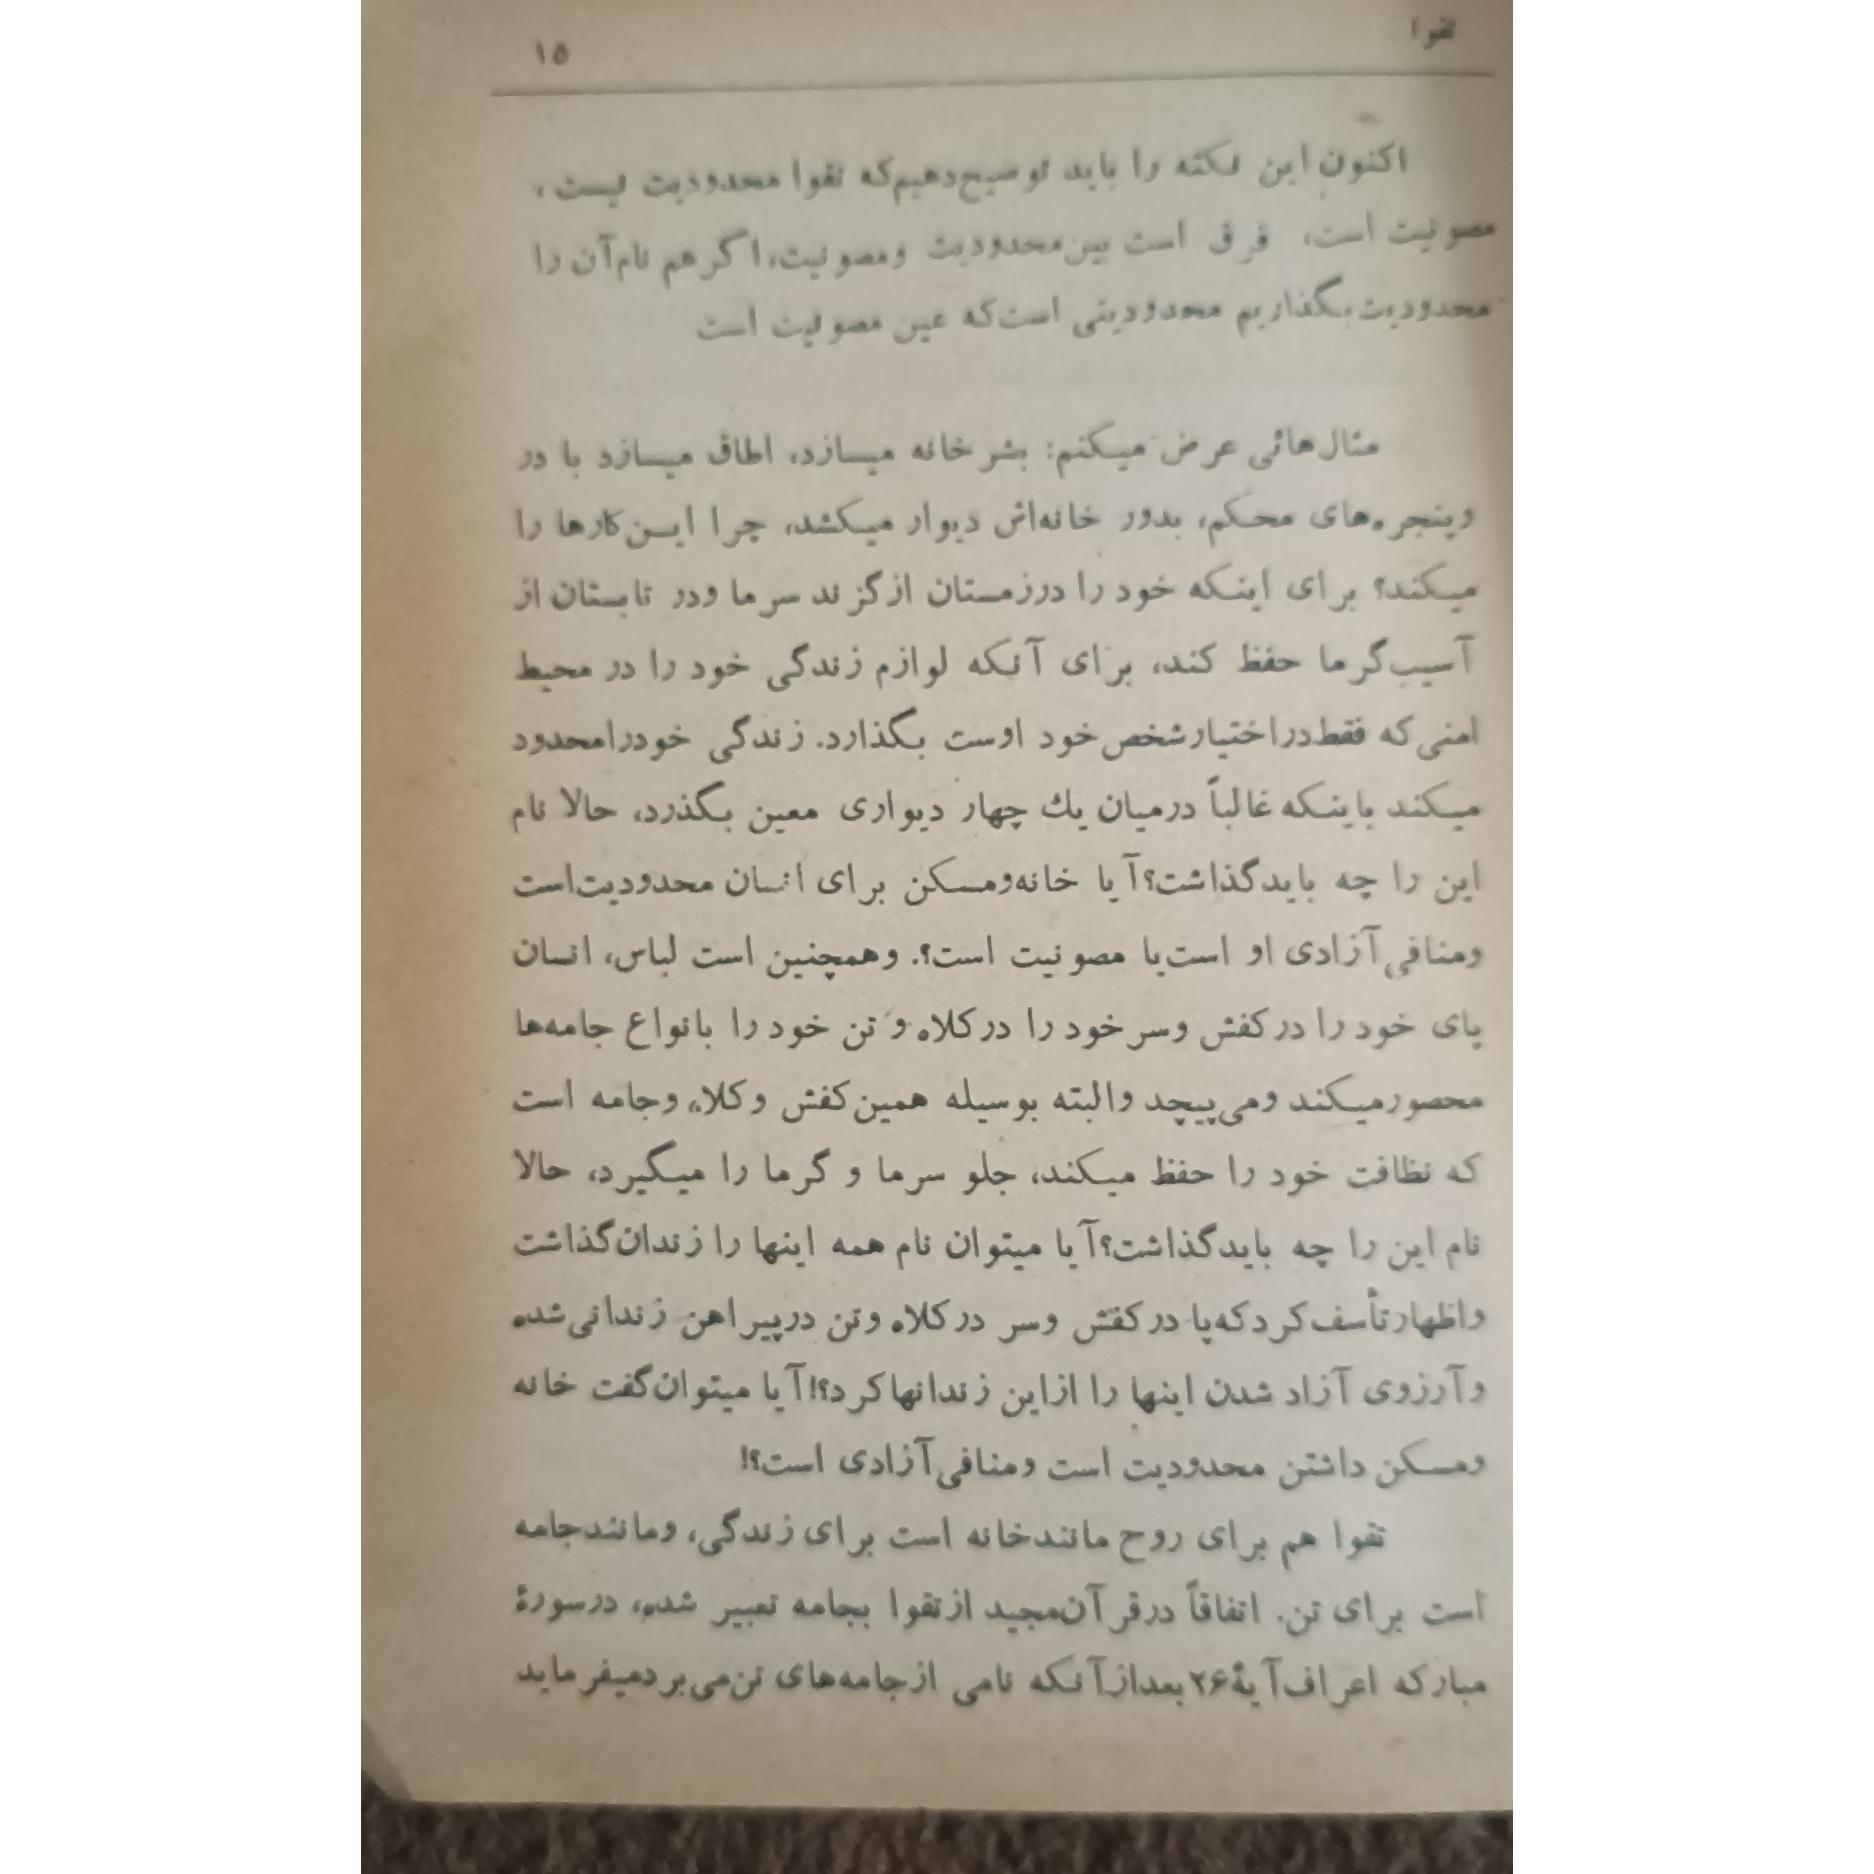 تقوا
۱۵
اکنون این نکته را باید توضیح دهیم که تقوا محدودیت نیست،
مصونیت است، فرق است بین محدودیت ومصونیت، اگر هم نام آن را
محدودیت بگذاریم محدودیتی است که عین مصونیت است
مثال هائی عرض میکنم: بشر خانه میسازد، اطاق میسازد با در
وپنجره های محکم، بدور خانه اش دیوار میکشد، چرا این کارها را
میکند؟ برای اینکه خود را در زمستان از گزند سرما ودر تابستان از
آسیب گرما حفظ کند، برای آنکه لوازم زندگی خود را در محیط
امنی که فقط در اختیار شخص خود اوست بگذارد. زندگی خود را محدود
میکند باینکه غالباً در میان یك چهار دیواری معین بگذرد، حالا نام
این را چه باید گذاشت؟ آیا خانه ومسکن برای انسان محدودیت است
ومنافی آزادی او است یا مصونیت است؟. وهمچنین است لباس، انسان
پای خود را در کفش وسر خود را در کلاه و تن خود را بانواع جامه ها
محصور میکند ومی پیچد والبته بوسیله همین کفش وکلاه وجامه است
که نظافت خود را حفظ میکند، جلو سرما و گرما را میگیرد، حالا
نام این را چه باید گذاشت؟ آیا میتوان نام همه اینها را زندان گذاشت
واظهار تأسف کرد که پا در کفش وسر در کلاه وتن در پیراهن زندانی شده
وآرزوی آزاد شدن اینها را از این زندانها کرد؟! آیا میتوان گفت خانه
ومسکن داشتن محدودیت است ومنافی آزادی است؟!
تقوا هم برای روح مانند خانه است برای زندگی، ومانند جامه
است برای تن. اتفاقاً در قرآن مجید از تقوا بجامه تعبیر شده، در سورهٔ
مبارکه اعراف آیهٔ ۲۶ بعد از آنکه نامی از جامه های تن می برد میفرماید